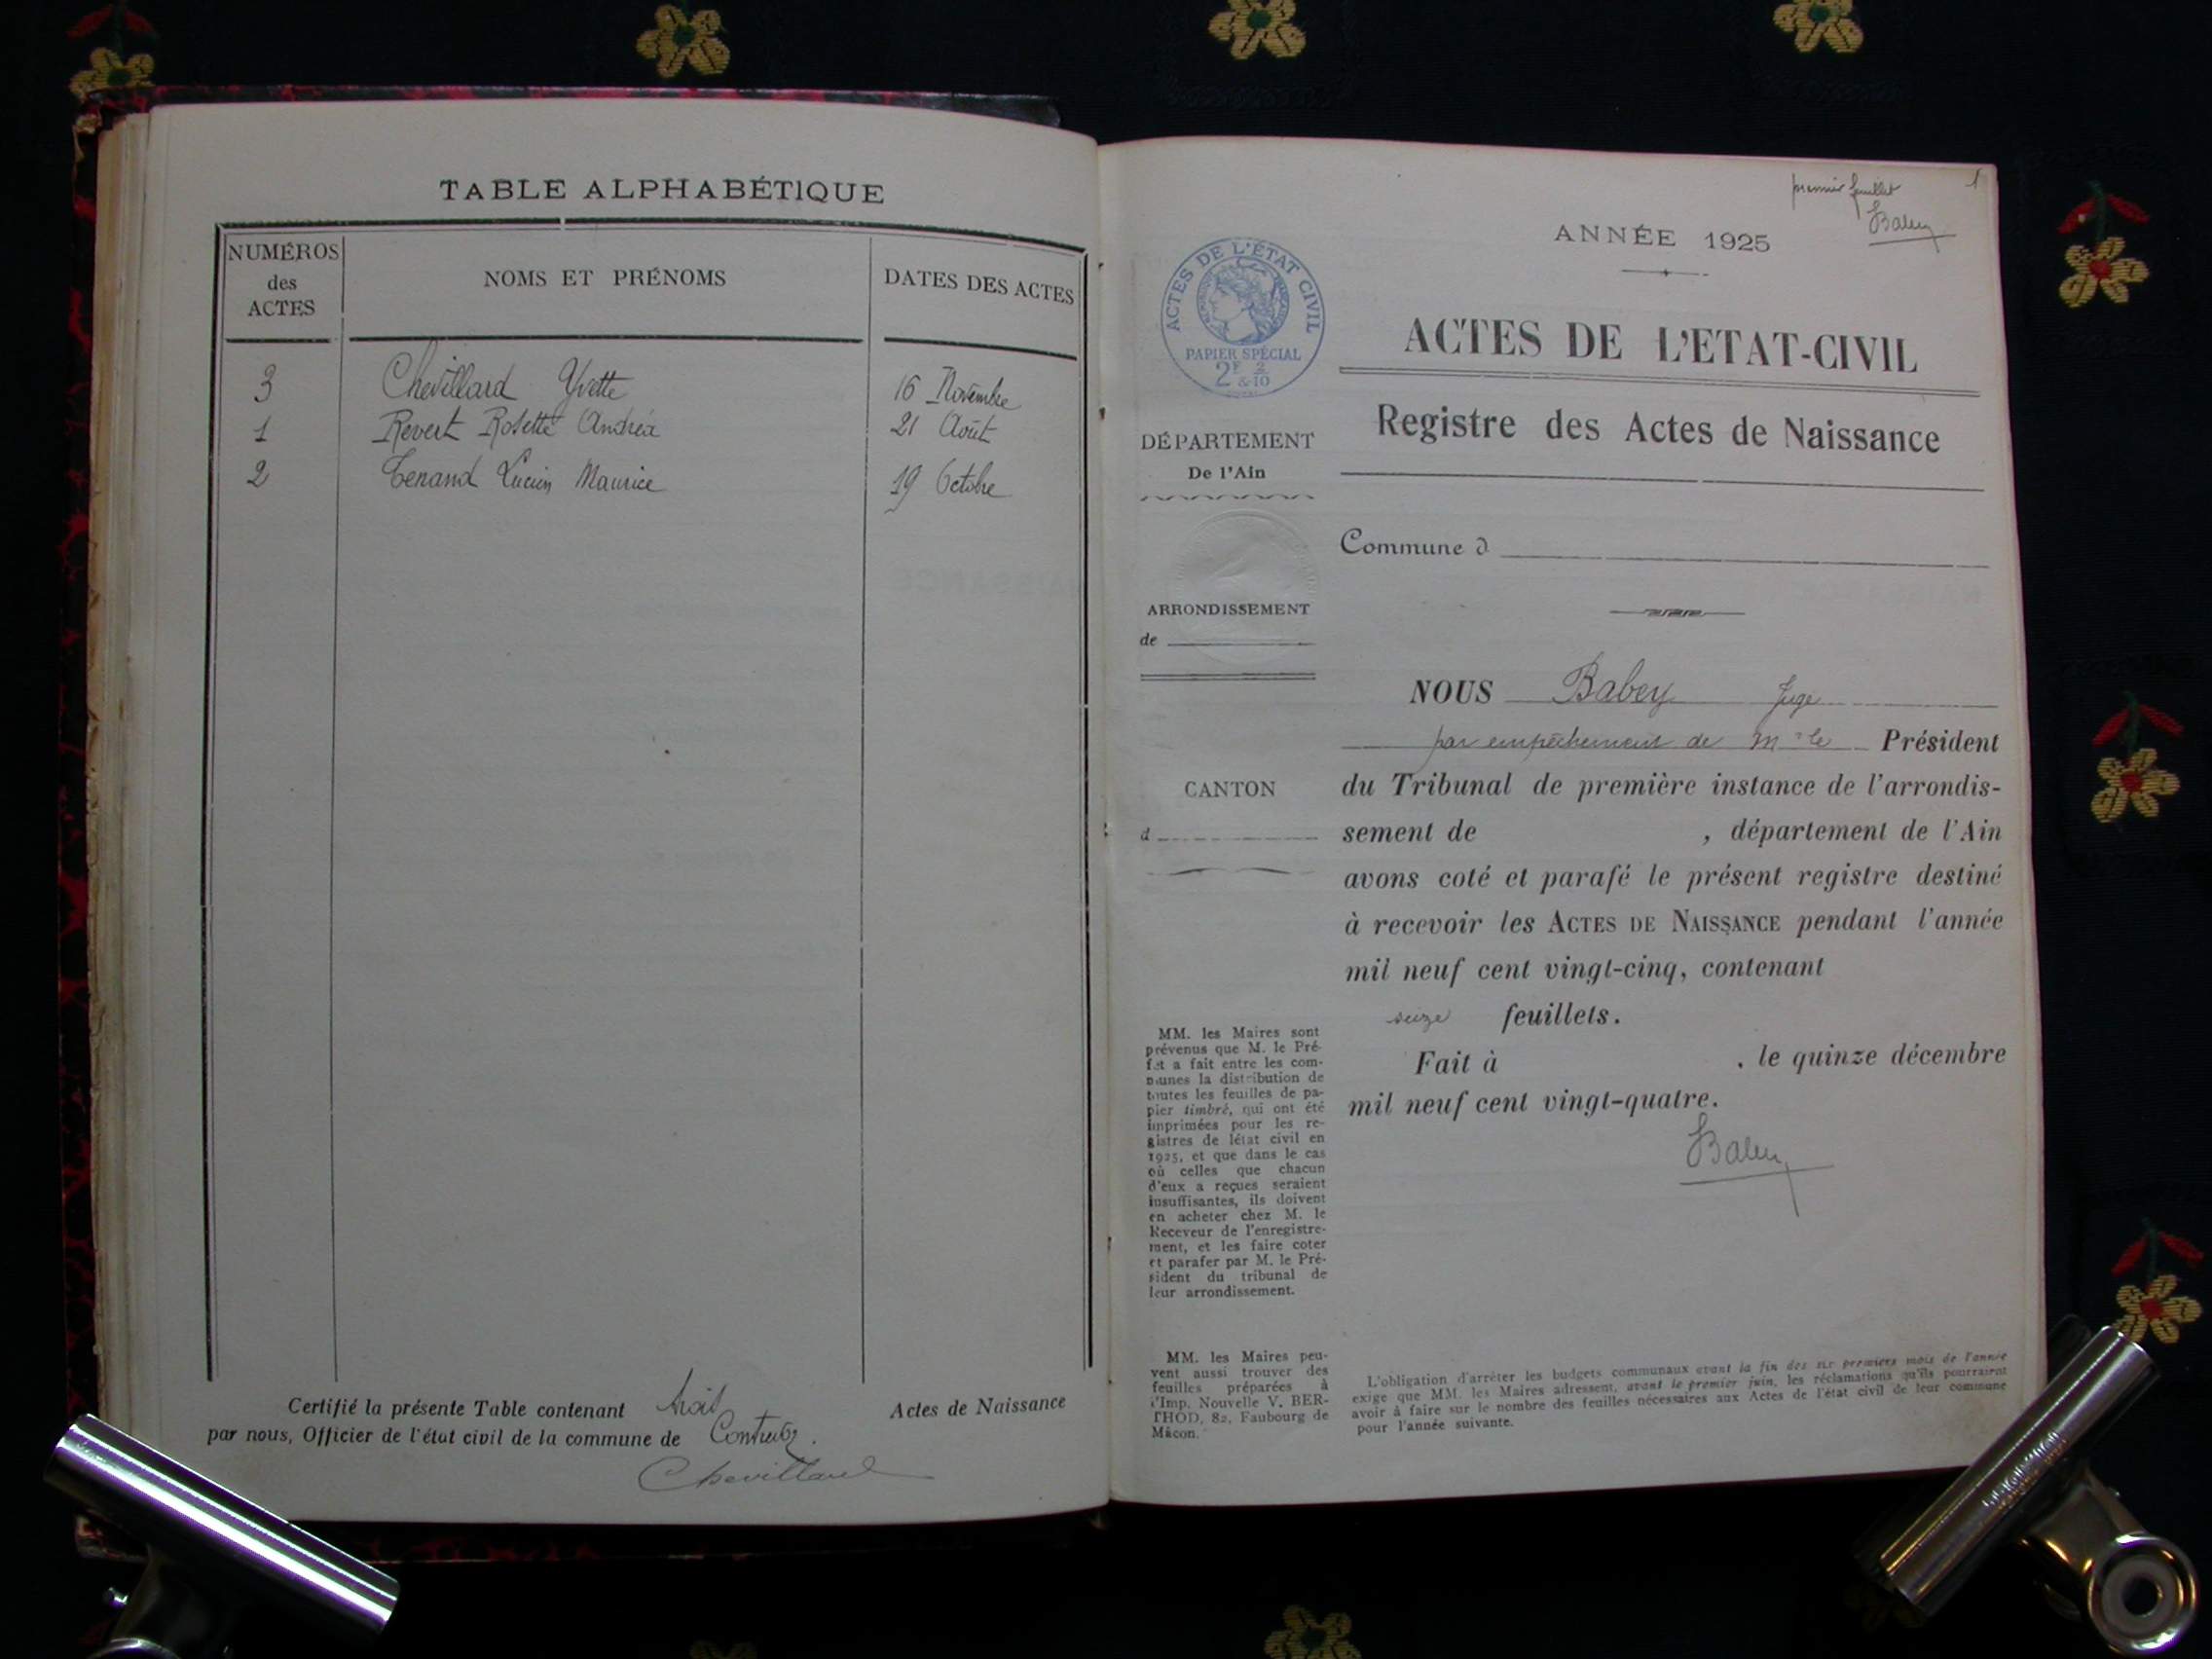 TABLE ALPHABÉTIQUE
NUMÉROS
des
ACTES
NOMS ET PRÉNOMS
DATES DES ACTES
3 Chevillard Yvette 16 Novembre
1 Revert Rosette Andréa 21 Août
2 Tenand Lucien Maurice 19 Octobre
Certifié la présente Table contenant trois Actes de Naissance
par nous, Officier de l'état civil de la commune de Contrevoz.
Chevillard
premier feuillet 1
Babey
ANNÉE 1925
ACTES DE L'ÉTAT CIVIL
PAPIER SPÉCIAL
2F & 2/10
ACTES DE L'ETAT-CIVIL
Registre des Actes de Naissance
DÉPARTEMENT
De l'Ain
Commune d
ARRONDISSEMENT
de
CANTON
d
NOUS Babey Juge
par empêchement de Mr le Président
du Tribunal de première instance de l'arrondis-
sement de , département de l'Ain
avons coté et parafé le présent registre destiné
à recevoir les ACTES DE NAISSANCE pendant l'année
mil neuf cent vingt-cinq, contenant
seize feuillets.
Fait à , le quinze décembre
mil neuf cent vingt-quatre.
Babey
MM. les Maires sont
prévenus que M. le Pré-
fet a fait entre les com-
munes la distribution de
toutes les feuilles de pa-
pier timbré, qui ont été
imprimées pour les re-
gistres de létat civil en
1925, et que dans le cas
où celles que chacun
d'eux a reçues seraient
insuffisantes, ils doivent
en acheter chez M. le
Receveur de l'enregistre-
ment, et les faire coter
et parafer par M. le Pré-
sident du tribunal de
leur arrondissement.
MM. les Maires peu-
vent aussi trouver des
feuilles préparées à
l'Imp. Nouvelle V. BER-
THOD, 82, Faubourg de
Mâcon.
L'obligation d'arrêter les budgets communaux avant la fin des six premiers mois de l'année
exige que MM. les Maires adressent, avant le premier juin, les réclamations qu'ils pourraient
avoir à faire sur le nombre des feuilles nécessaires aux Actes de l'état civil de leur commune
pour l'année suivante.